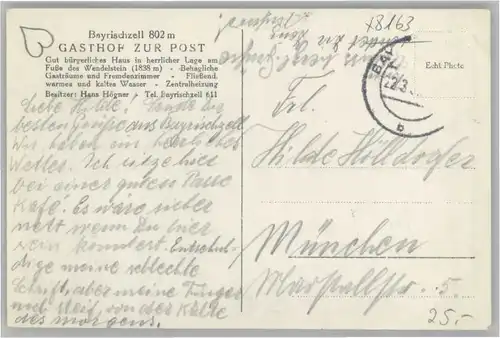 Bayrischzell 802 m
GASTHOF ZUR POST
Gut bürgerliches Haus in herrlicher Lage am
Fuße des Wendelstein (1838 m) - Behagliche
Gasträume und Fremdenzimmer - Fließend.
warmes und kaltes Wasser - Zentralheizung
Besitzer: Hans Högner - Tel. Bayrischzell 611
Liebe Hilde. Sende die
besten Grüße aus Bayrischzell
Wir haben ein herrliches
Wetter. Ich sitze hier
bei einer guten Tasse
Kafe. Es wäre sicher
nett wenn Du hier
sein könntest. Entschul-
dige meine schlechte
Schrift, aber meine Finger
sind steif, von der Kälte
des morgens.
x8163
Echt Photo
BAY
22.3.
b
Frl.
Hilde Hölldorfer
München
Marstallstr. 5.
25.-